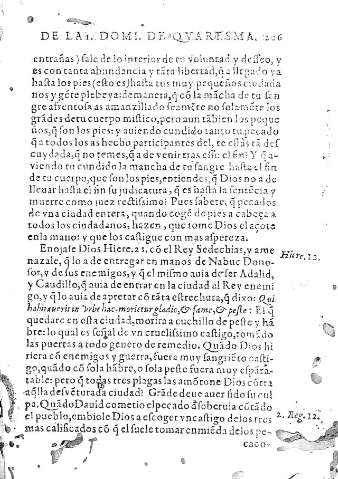 DE LA I. DOMI. DE QVARESMA. 206
entrañas) sale de lo interior de tu voluntad y desseo, y
es con tanta abundancia y tãta libertad, q̃ a llegado ya
hasta los pies (esto es) hasta tus muy pequeños ciudada
nos y gẽte plebeya: de manera, q̃ cõ la mãcha de tu san
gre afrentosa as amanzillado feamẽte no solamẽte los
grãdes de tu cuerpo mistico, pero aun tãbiẽ los peque
ños, q̃ son los pies: y auiendo cundido tanto tu pecado
q̃ a todos los as hecho participantes del, te estàs tã des
cuydada, q̃ no temes, q̃ a de venir tras esso el fin? Y q̃ a-
viendo tu cundido la mancha de tu sangre hasta el fin
de tu cuerpo, que son los pies, entiendes, q̃ Dios no a de
lleuar hasta el fin su judicatura, q̃ es hasta la sentẽcia y
muerte como juez rectissimo? Pues sabete, q̃ pecados
de vna ciudad entera, quando coge de pies a cabeça a
todos los ciudadanos, hazen, que tome Dios el açote
en la mano: y que los castigue con mas aspereza.
Enojase Dios Hiere. 21. cõ el Rey Sedechias, y ame
nazale, q̃ lo a de entregar en manos de Nabuc Dono-
sor, y de sus enemigos, y q̃ el mismo auia de ser Adalid,
y Caudillo, q̃ auia de entrar en la ciudad al Rey enemi
go, y q̃ lo auia de apretar cõ tãta estrechura, q̃ dixo: Qui
habitauerit in vrbe hac, morietur gladio, & fame, & peste: El q̃
quedare en esta ciudad, morira a cuchillo de peste y hã
bre: lo qual es señal de vn cruelissimo castigo, tomãdo
las puertas a todo genero de remedio. Quãdo Dios hi
riera cõ enemigos y guerra, fuera muy sangriẽto casti-
go, quãdo cõ sola hãbre, o sola peste fuera muy espãra-
table: pero q̃ todas tres plagas las amõtone Dios cõtra
aq̃lla desvẽturada ciudad? Grãde deue auer sido su cul
pa. Quãdo Dauid cometio el pecado d̃ soberuia cõtãdo
el pueblo, embiole Dios a escoger vn castigo de los tres
mas calificados cõ q̃ el suele tomar enmiẽda de los pe-
caco-
Hiere. 12.
2. Reg. 12.